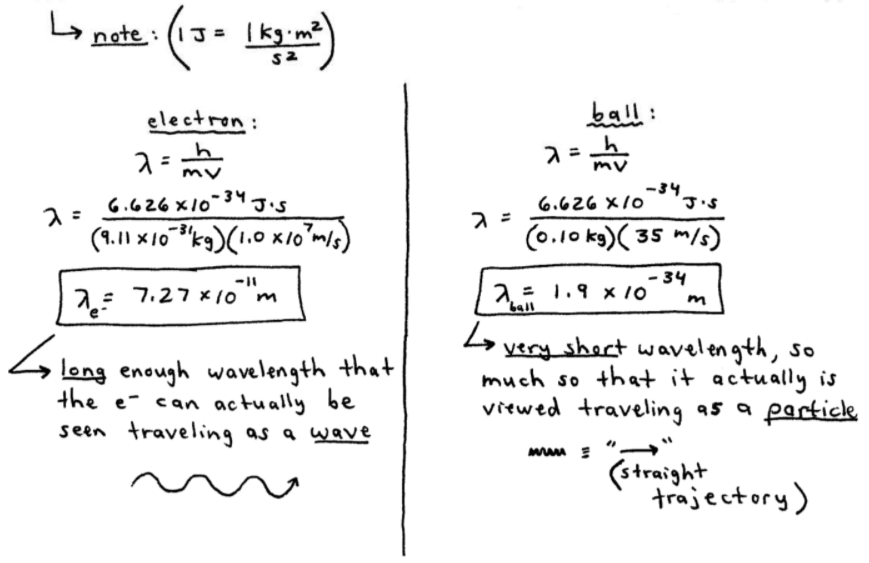 note: (1 J = 1 kg·m²/s²)
electron:
λ = h/mv
λ = 6.626 × 10⁻³⁴ J·s / (9.11 × 10⁻³¹ kg)(1.0 × 10⁷ m/s)
λₑ₋ = 7.27 × 10⁻¹¹ m
long enough wavelength that
the e⁻ can actually be
seen traveling as a wave
ball:
λ = h/mv
λ = 6.626 × 10⁻³⁴ J·s / (0.10 kg)(35 m/s)
λ_ball = 1.9 × 10⁻³⁴ m
very short wavelength, so
much so that it actually is
viewed traveling as a particle
≡ "→"
(straight
trajectory)